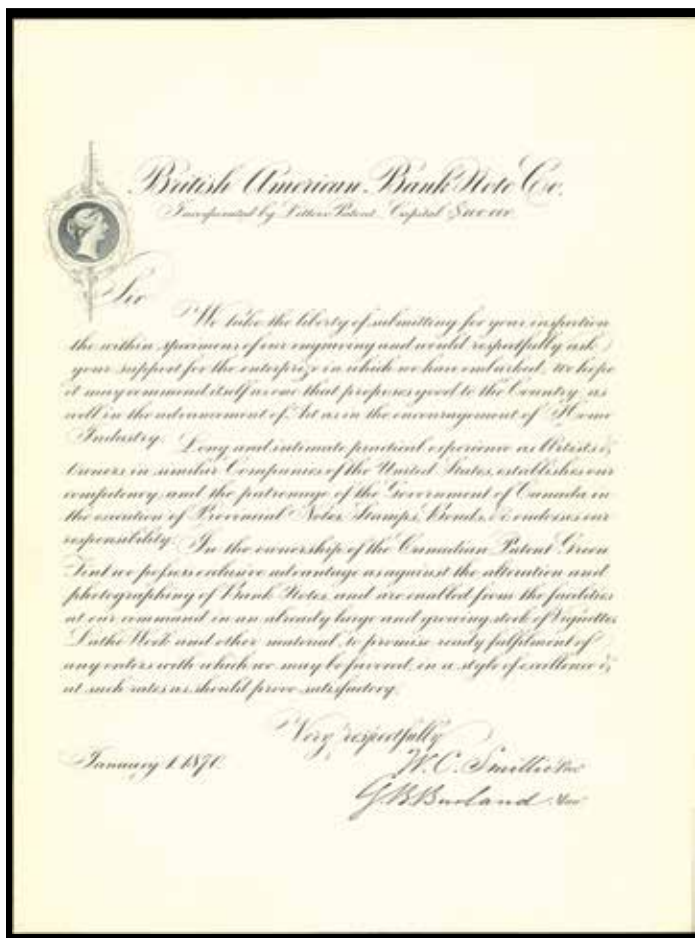 British American Bank Note Co.
Incorporated by Letters Patent. Capital $100.000.
Sir
We take the liberty of submitting for your inspection
the within specimens of our engraving and would respectfully ask
your support for the enterprize in which we have embarked. We hope
it may commend itself as one that proposes good to the Country, as
well in the advancement of Art as in the encouragement of Home
Industry. Long and intimate practical experience as Artists &
Owners in similar Companies of the United States, establishes our
competency, and the patronage of the Government of Canada in
the execution of Provincial Notes, Stamps, Bonds, &c. endorses our
responsibility. In the ownership of the Canadian Patent Green
Tint we possess exclusive advantage as against the alteration and
photographing of Bank Notes, and are enabled from the facilities
at our command in an already large and growing stock of Vignettes,
Lathe Work and other material, to promise ready fulfilment of
any orders with which we may be favored, in a style of excellence &
at such rates as should prove satisfactory.
Very respectfully
January 1. 1870.
W. C. Smillie
G. B. Burland